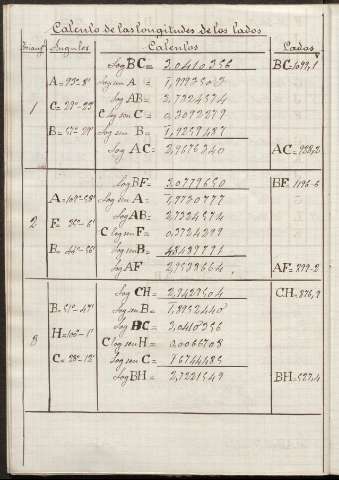 Calculo de las longitudes de los lados
Triang. Angulos Calculos Lados
log BC = 3,0410356 BC=1099,1
A=93°-8' log sen A = 1,9993503
log AB = 2,7324574
1 C=29°-23' C log sen C = 0,3092277
B=57°-29' log sen B = 1,9259487
log AC = 2,9676340 AC=928,2
log BF = 3,0779650 BF=1196-6
log sen A = 1,9730777
log AB = 2,7324574
2 C log sen F = 0,3724299
log sen B =
log AF = AF=899-2
log CH = 2,9429504 CH=876,9
B=51°-47' log sen B = 1,8952440
log BC = 3,0410356
3 H=100°-1' C log sen H = 0,0066708
C=28°-12' log sen C = 1,6744485
log BH = 2,7221549 BH=527,4